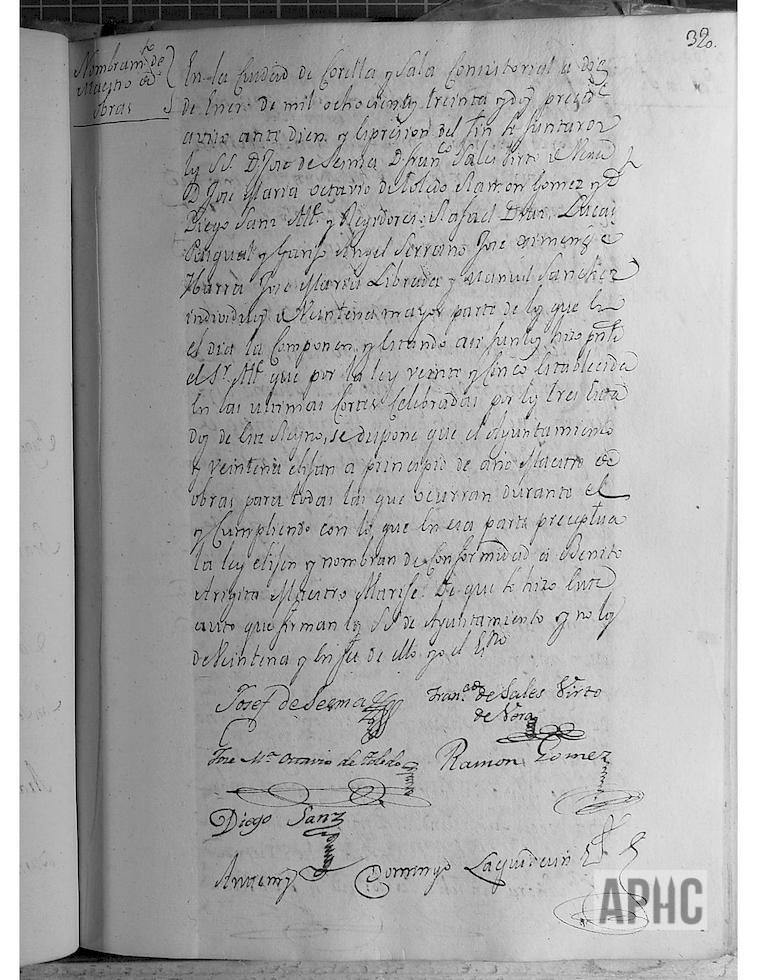 32o.
Nombram.to de
Maestro de
obras
En la Ciudad de Corella y Sala Consistorial a diez
de Enero de mil ochocientos treinta y dos preced.te
aviso ante diem y expresion del fin se juntaron
los SS. D. Jose de Sesma D. Fran.co Sales Virto de Vera
D. Jose Maria Octavio de Toledo Ramon Gomez y D.
Diego Sanz Alc.e y Regidores: Rafael Lucas
Pasqual y Angel Serrano Jose Ximenez
Ybarra Jose Maria Librada y Manuel Sanchez
individuos de Veintena mayor parte de los que en
el dia la componen, y estando asi juntos hizo pnte
el S.r Alc.e que por la ley veinte y cinco establecida
en las ultimas Cortes Celebradas por los tres Esta
dos de este Reyno, se dispone que el Ayuntamiento
y veintena elijan a principio de año Maestro de
obras para todas las que ocurran durante el
y Cumpliendo con lo que en esa parte preceptua
la ley elijen y nombran de conformidad a Benito
Arigita Maestro Alarife: De que se hizo este
auto que firman los SS. de Ayuntamiento y no los
de Veintena y en fee de ello yo el Es.no
Josef de Sesma Fran.co de Sales Virto
de Vera
Jose M.a Octavio de Toledo Ramon Gomez
Diego Sanz
Ante mi Domingo Laquidain
APHC